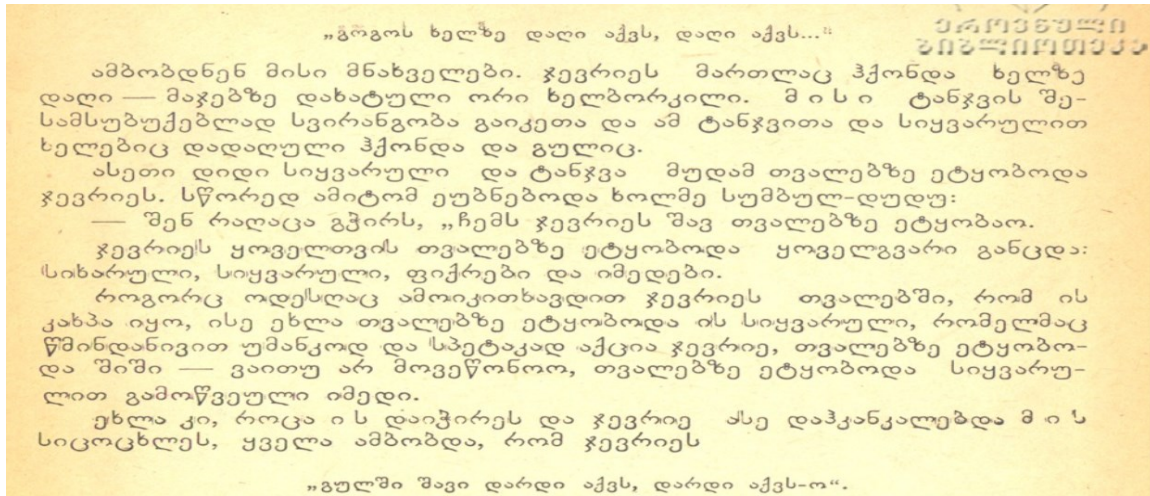 „გოგოს ხელზე დაღი აქვს, დაღი აქვს...“
ეროვნული
ბიბლიოთეკა
ამბობდნენ მისი მნახველები. ჯევრიეს მართლაც ჰქონდა ხელზე
დაღი — მაჯებზე დახატული ორი ხელბორკილი. მ ი ს ი ტანჯვის შე-
სამსუბუქებლად სვირანგობა გაიკეთა და ამ ტანჯვითა და სიყვარულით
ხელებიც დადაღული ჰქონდა და გულიც.
ასეთი დიდი სიყვარული და ტანჯვა მუდამ თვალებზე ეტყობოდა
ჯევრიეს. სწორედ ამიტომ ეუბნებოდა ხოლმე სუმბულ-დუდუ:
— შენ რაღაცა გჭირს, „ჩემს ჯევრიეს შავ თვალებზე ეტყობაო.
ჯევრიეს ყოველთვის თვალებზე ეტყობოდა ყოველგვარი განცდა:
სიხარული, სიყვარული, ფიქრები და იმედები.
როგორც ოდესღაც ამოიკითხავდით ჯევრიეს თვალებში, რომ ის
კახპა იყო, ისე ეხლა თვალებზე ეტყობოდა ის სიყვარული, რომელმაც
წმინდანივით უმანკოდ და სპეტაკად აქცია ჯევრიე, თვალებზე ეტყობო-
და შიში — ვაითუ არ მოვეწონოო, თვალებზე ეტყობოდა სიყვარუ-
ლით გამოწვეული იმედი.
ეხლა კი, როცა ი ს დაიჭირეს და ჯევრიე ასე დაჰკანკალებდა მ ი ს
სიცოცხლეს, ყველა ამბობდა, რომ ჯევრიეს
„გულში შავი დარდი აქვს, დარდი აქვს-ო“.